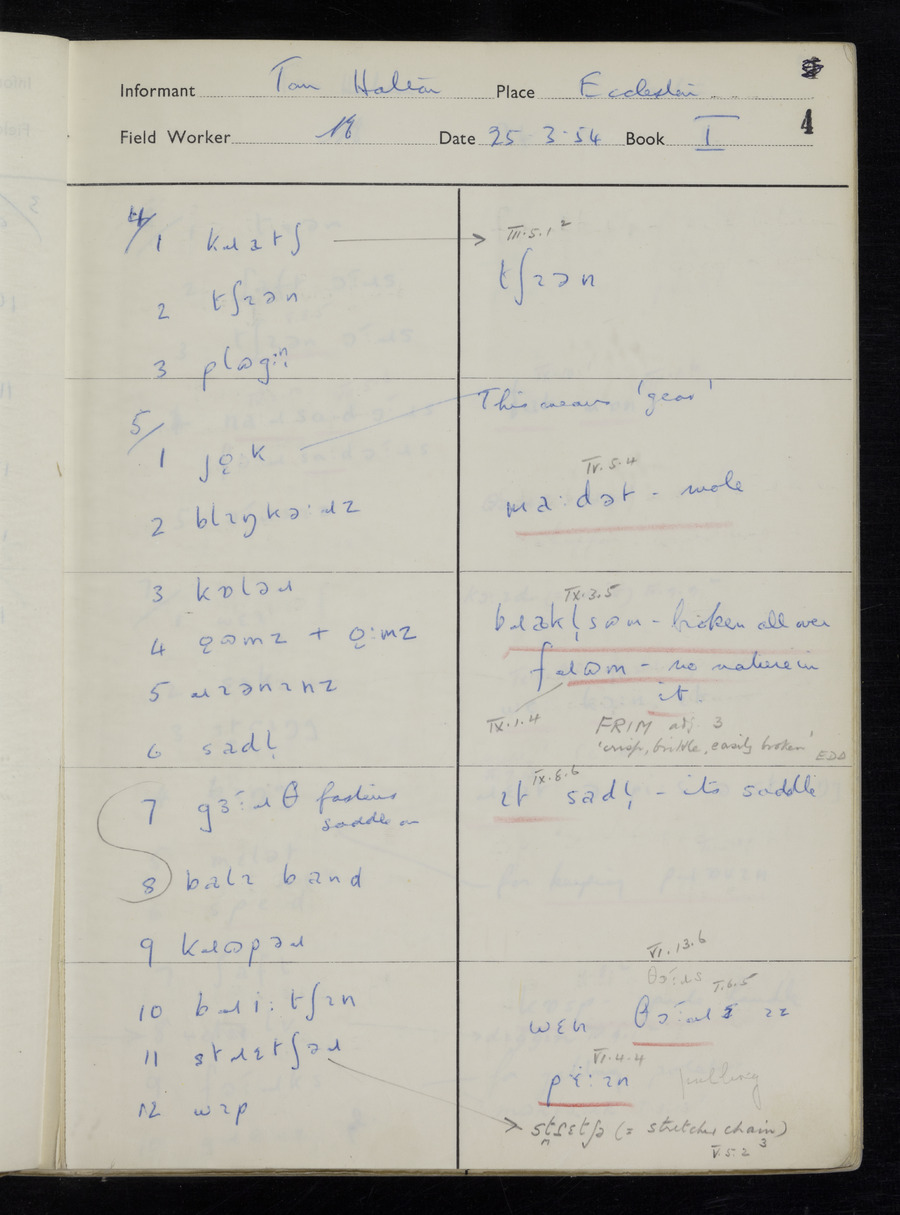 Informant Tom Halton Place Eccleston
4
Field Worker Date 25-3-54 Book I
4/
1 kɹatʃ
2 tʃɪən
3
5/
1 jǫk
2 blɪŋkəːɹz
3 kɒləɹ
4 ǫʊmz + ǫːmz
5 ɹɪənɪnz
6 sadl̩
7 gɜːɹθ fastens
saddle on
8 balɪ band
9 kɹʊpəɹ
10 bɹiːtʃɪn
11 stɹɛtʃəɹ
12 wɪp
III.5.1²
tʃɪən
This means 'gear'
IV.5.4
maːdət - mole
IX.3.5
bɹakl̩sʊm - broken all over
fɹʊm - no nature in
it.
IX.1.4
FRIM adj. 3
'crisp, brittle, easily broken'
EDD
IX.8.6
ɪt sadl̩ - its saddle
VI.13.6
I.6.5
wɛn
VI.4.4
pulling
(= stretcher chain)
V.5.2 3